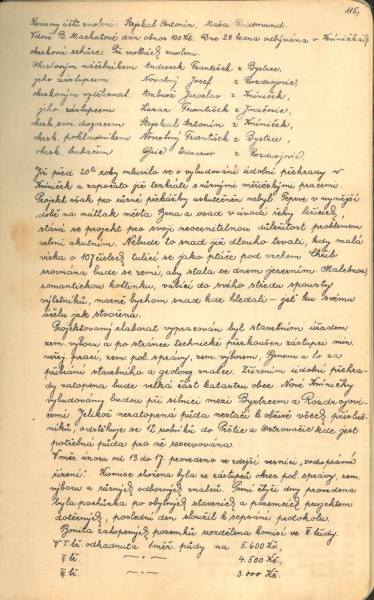 115,
Revisory účtů zvoleni: Stejskal Antonín, Maša Raidmund.
Vdově B. Machatové dán obnos 100 Kč. Dne 28. ledna odbývána v Kníničkách
okrsková schůze. Při volbách zvoleni:
Okrskovým náčelníkem Anderek František z Bystrce,
jeho zástupcem Novotný Josef z Rozdrojovic,
okrskovým vzdělavat. Ambrož Jaroslav z Kníniček,
jeho zástupcem František z Jinačovic,
okrsk. sam. doprcem Stejskal Antonín z Kníniček,
okrsk. pokladníkem Novotný František z Bystrce,
okrsk. trubačem z Rozdrojovic.
Již před 20ti roky mluvilo se o vybudování údolní přehrady v
Kníničkách a započato již tenkráte s různými měřickými pracemi.
Projekt však pro různé překážky uskutečněn nebyl. Teprve v nynější
době na nátlak města Brna a osad v úvodí řeky ležících,
stává se projekt pro svoji neocenitelnou důležitost problémem
velmi akutním. Nebude to snad již dlouho trvati, kdy malá
víska o 107 číslech tulící se jako ptáče pod vrchem Chlub
srovnána bude se zemí, aby stala se dnem jezerním. Malebnou,
romantickou kotlinku, vábící do svého středu spousty
výletníků, marně bychom snad kde hledali – jeť ku svému
účelu jak stvořená.
Projektovaný elaborát vypracován byl stavebním úřadem
zem. výboru a po stránce technické přezkoušen zástupci min.
veřej. prací, zem. pol. správy, zem. výborem, Brnem a to za
přibrání stavebního a geolog. znalce. Zřízením údolní přehra-
dy zatopena bude velká část katastru obce. Nové Kníničky
vybudovány budou při silnici mezi Bystrcem a Rozdrojovi-
cemi. Jelikož nezatopená půda nestačí k obživě všech přísluš-
níků, odstěhuje se 12 rolníků do Pištic a Ostrovačic kde jest
potřebná půda pro ně rezervována.
V měs. únoru od 13. do 17. provedeno ve zdejší vesnici „vodoprávní
řízení.“ Komise složena byla ze zástupců okres. pol. správy, zem.
výboru a různých odborných znalců. První čtyři dny provedena
byla pochůzka po obytných staveních a pozemcích projektem
dotčených, poslední den sloužil k sepsání protokolu.
Bonita zatopených pozemků rozdělena komisí ve 4. třídy.
V I. tř. odhadnuta 1 měř. půdy na 5.600 Kč,
II. tř. —"— 4.500 Kč.
III. tř. —"— 3.000 Kč.